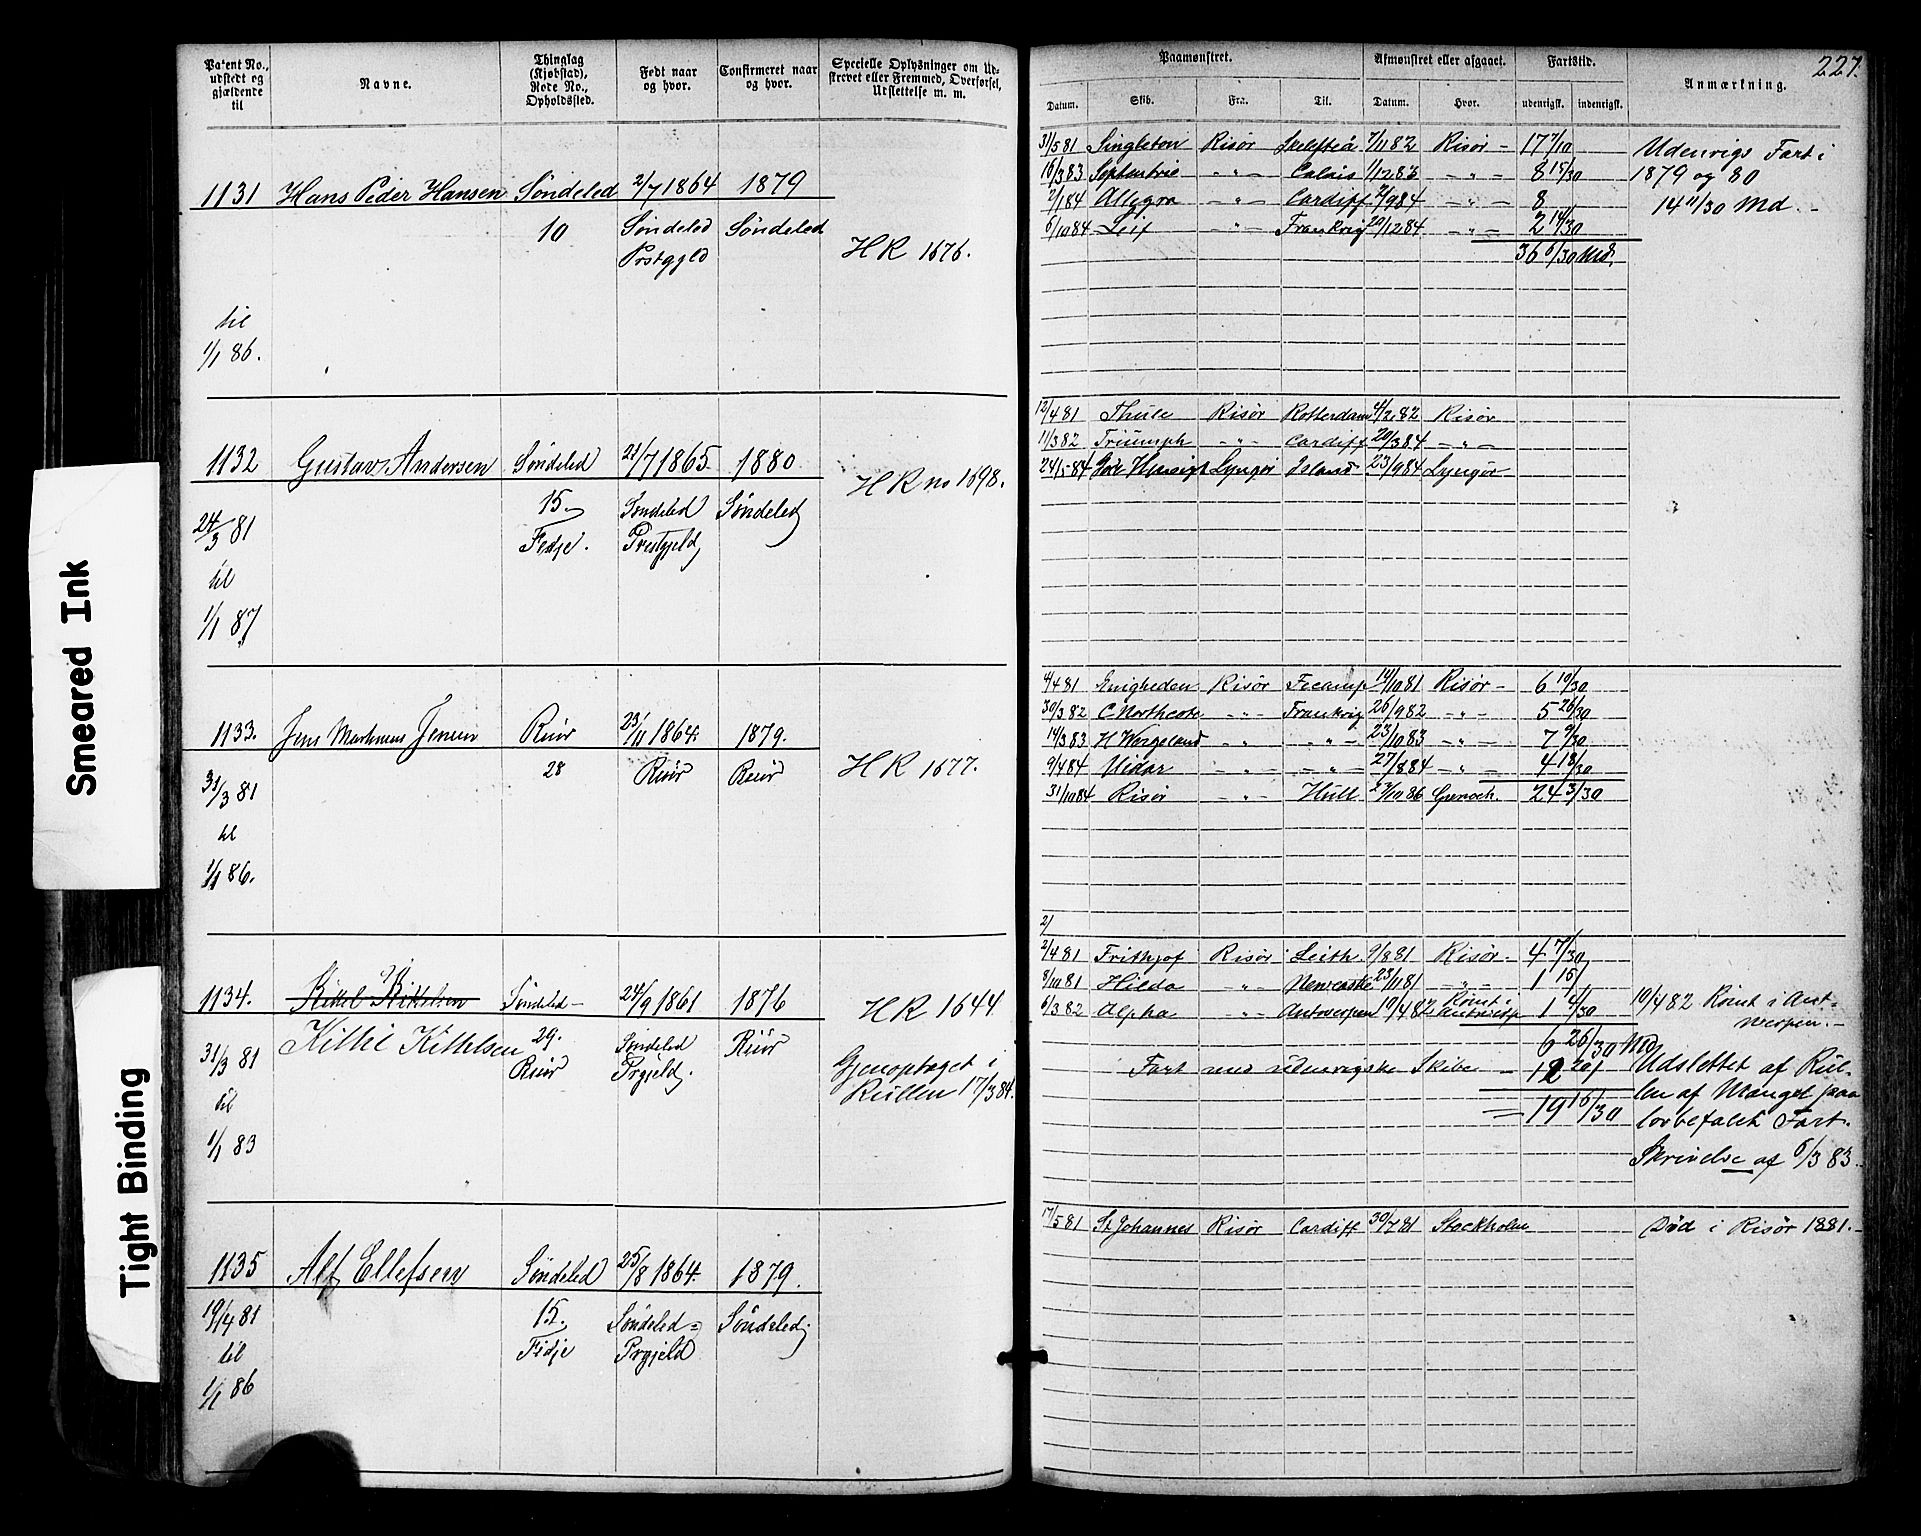 Smeared Ink
Tight Binding
Patent No., udstedt og gjældende til
Navne.
Thinglag (Kjøbstad), Rode No., Opholdssted.
Født naar og hvor.
Confirmeret naar og hvor.
Specielle Oplysninger om Udskrevet eller Fremmed, Overførsel, Udslettelse m. m.
1131 Hans Peder Hansen Söndeled 2/7 1864 1879
10 Söndeled Söndeled
HR 1676.
til
1/1 86.
1132 Gustav Andersen Söndeled 28/7 1865 1880
HR no 1698.
15. Söndeled Söndeled
24/3 81 Fedje. Prestgjeld
til
1/1 87
1133. Jens Jensen Risör 23/11 1864. 1879.
28 Risör Risör
HR 1677.
31/3 81
til
1/1 86.
1134. Kittel Kittelsen Söndeled 24/9 1861 1876
HR 1644
Kittil Kittelsen 29. Söndeled Risör
31/3 81 Risör Prgjeld.
Gjenoptaget i
Rullen 17/3 84.
til
1/1 83
1135 Alf Ellefsen Söndeled 25/8 1864. 1879.
19/4 81 15. Söndeled Söndeled
til Fedje Prgjeld
1/1 86
227.
Paamønstret.
Afmønstret eller afgaaet.
Fartstid.
Anmærkning.
Datum. Skib. Fra. Til. Datum. Hvor. udenrigsk. indenrigsk.
31/5 81 Singleton Risör Skelefteå 7/11 82 Risör - 17 7/10
Udenrigs Fart i
16/3 83 Risör Calais 1/12 83 - " - 8 15/30
1879 og 80
2/1 84 Allegra - " - Cardiff 2/9 84 - " - 8
14 11/30 Md. -
6/10 84 Leif - " - Frankrig 20/12 84 - " - 2 14/30
36 6/30 Md.
12/4 81 Thule Risör Rotterdam 4/2 82 Risör
11/3 82 Triumph - " - Cardiff 20/3 84 - " -
24/5 84 Lyngör Island 23/9 84 Lyngör
4/4 81 Enigheden Risör Fecamp 14/10 81 Risör - 6 10/30
30/3 82 C Northcote - " - Frankrig 26/9 82 - " - 5 26/30
14/3 83 H Wergeland - " - - " - 23/10 83 - " - 7 9/30
9/4 84 Vidar - " - - " - 27/8 84 - " - 4 18/30
31/10 84 Risör - " - Hull 23/10 86 Grenoch. 24 3/30
2/
2/4 81 Frithjof Risör Leith 9/8 81 Risör. 4 7/30
8/10 81 Hilda - " - Newcastle 23/11 81 - " - 1 15/
6/3 82 Alpha - " - Antwerpen 10/4 82 Römt i Antwerp. 1 4/30
10/4 82 Römt i Antwerpen. -
6 26/30 Md
Fart med udenrigske Skibe - 12 20/
= 19 16/30
Udslettet af Rullen af Mangel paa
lovbefalet Fart.
Skrivelse af 6/3 83.
17/5 81 St Johannes Risör Cardiff 30/7 81 Stockholm
Död i Risör 1881. -